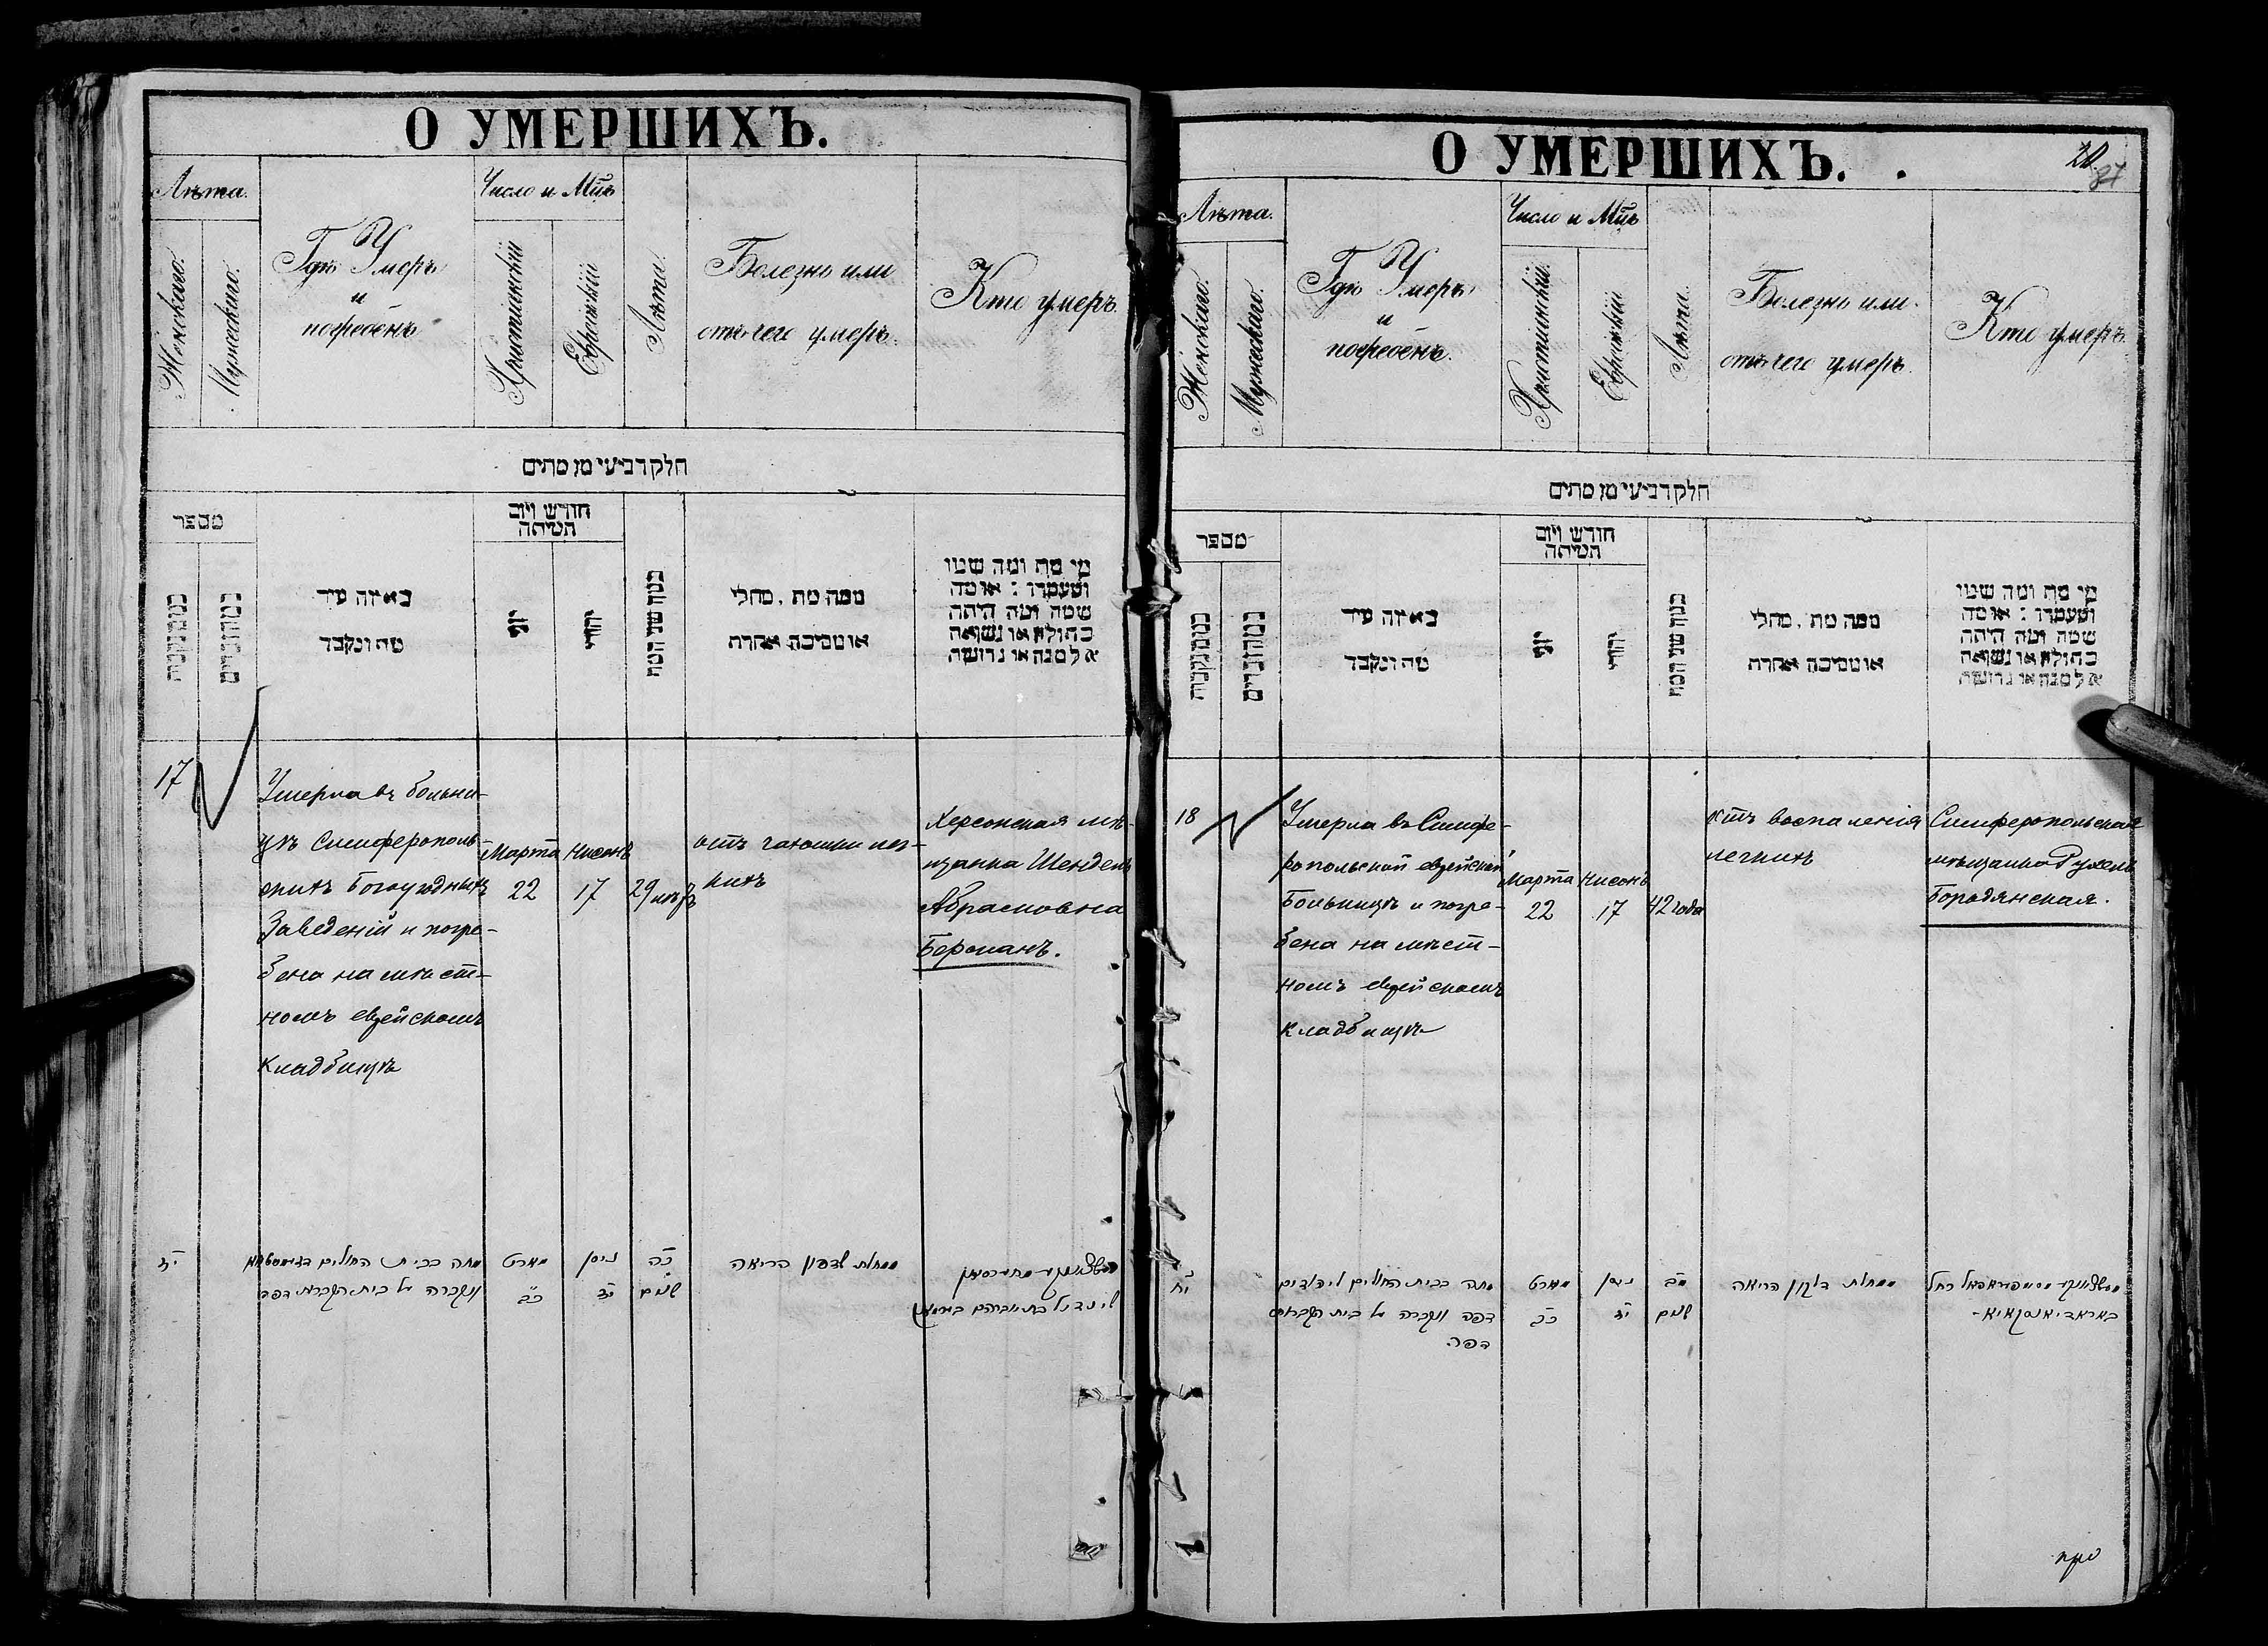 О УМЕРШИХЪ.
Лѣта.
Женскаго.
Мужескаго.
Гдѣ Умеръ
и
погребёнъ
Число и Мцъ
Христіанскій
Еврейскій
Лѣта.
Болезнь или
отъ чего умеръ.
Кто умеръ.
חלק רביעי מן מתים
מספר
חודש ויום
המיתה
באיזה עיר
מת ונקבר
ממה מת . מחלי
או מסיבה אחרת
מי מת ומה שמו
ומעמדו : או מה
שמה ומה היתה
בתולה או נשואה
אלמנה או גרושה
17
Умерла въ больни-
цѣ Симферополь-
скихъ Богоугодныхъ
Заведеній и погре-
бена на мѣст-
номъ еврейскомъ
кладбищѣ
Марта
22
Нисонъ
17
29 лѣтъ
отъ чахотки лег-
кихъ
Херсонская мѣ-
щанка Шендель
Абрамовна
Берманъ.
יז
מתה בבית החולים
ונקברה על בית הקברות דפה
מארט
כב
ניסן
יז
שנים
הריאה
О УМЕРШИХЪ.
20
87
Лѣта.
Женскаго.
Мужескаго.
Гдѣ Умеръ
и
погребёнъ.
Число и Мцъ
Христіанскій
Еврейскій
Лѣта.
Болезнь или
отъ чего умеръ.
Кто умеръ.
חלק רביעי מן מתים
מספר
חודש ויום
המיתה
באיזה עיר
מת ונקבר
ממה מת . מחלי
או מסיבה אחרת
מי מת ומה שמו
ומעמדו : או מה
שמה ומה היתה
בתולה או נשואה
אלמנה או גרושה
18
Умерла въ Симфе-
ропольской еврейской
Больницѣ и погре-
бена на мѣст-
номъ еврейскомъ
кладбищѣ
Марта
22
Нисонъ
17
42 года
отъ воспаленія
легкихъ
Симферопольская
мѣщанка Рухель
Бородянская.
יח
מתה בבית החולים ליהודים
דפה ונקברה על בית הקברות
דפה
מארט
כב
ניסן
יז
מב
שנים
ממחלת דלקת הריאה
רחל
באראדיאנסקאיא